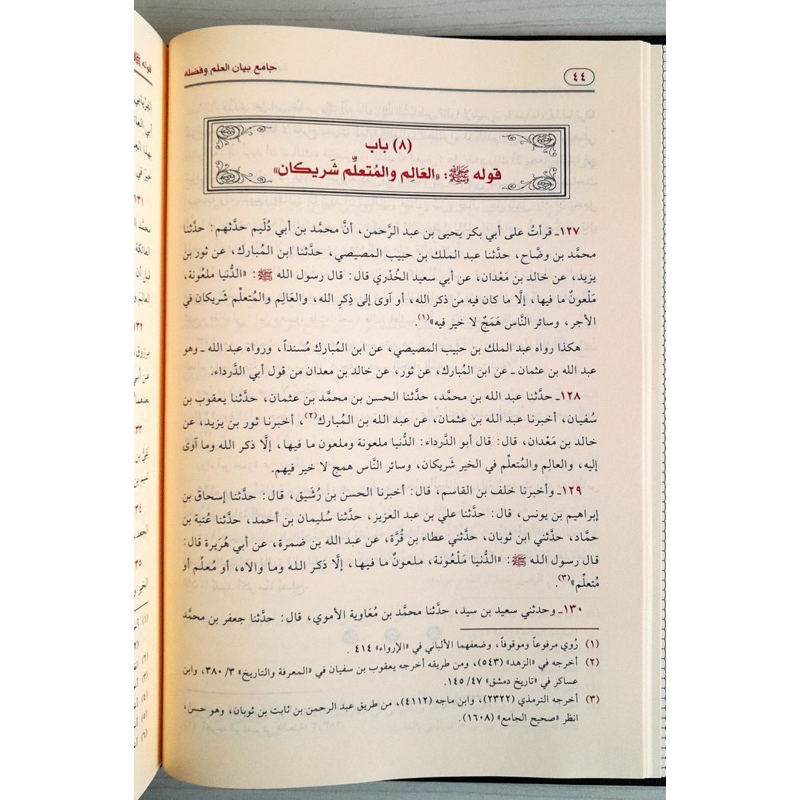 جامع بيان العلم وفضله
٤٤
(٨) باب
قوله ﷺ: «العَالِم والمُتعلِّم شَريكان»
١٢٧ـ قرأتُ على أبي بكر يحيى بن عبد الرَّحمن، أنَّ محمَّد بن أبي دُلَيم حدَّثهم: حدَّثنا
محمَّد بن وضَّاح، حدَّثنا عبد الملك بن حبيب المصيصي، حدَّثنا ابن المُبارك، عن ثور بن
يزيد، عن خالد بن مَعْدان، عن أبي سعيد الخُدْري قال: قال رسول الله ﷺ: «الدُّنيا ملعُونة،
مَلْعونٌ ما فيها، إلَّا ما كان فيه من ذكر الله، أو آوى إلى ذِكرِ الله، والعَالِم والمُتعلِّم شَريكان في
الأجر، وسائر النَّاس هَمَجٌ لا خير فيه»(١).
هكذا رواه عبد الملك بن حبيب المصيصي، عن ابن المُبارك مُسنداً، ورواه عبد الله ـ وهو
عبد الله بن عثمان ـ عن ابن المُبارك، عن ثور، عن خالد بن معدان من قول أبي الدَّرداء.
١٢٨ـ حدَّثنا عبد الله بن محمَّد، حدَّثنا الحسن بن محمَّد بن عثمان، حدَّثنا يعقوب بن
سُفيان، أخبرنا عبد الله بن عثمان، عن عبد الله بن المُبارك(٢)، أخبرنا ثور بن يزيد، عن
خالد بن مَعْدان، قال: قال أبو الدَّرداء: الدُّنيا ملعونة وملعون ما فيها، إلَّا ذكر الله وما آوى
إليه، والعالِم والمُتعلِّم في الخير شَريكان، وسائر النَّاس همج لا خير فيهم.
١٢٩ـ وأخبرنا خلف بن القاسم، قال: أخبرنا الحسن بن رُشَيق، قال: حدَّثنا إسحاق بن
إبراهيم بن يونس، قال: حدَّثنا علي بن عبد العزيز، حدَّثنا سُليمان بن أحمد، حدَّثنا عُتبة بن
حمَّاد، حدَّثني ابن ثوبان، حدَّثني عطاء بن قُرَّة، عن عبد الله بن ضمرة، عن أبي هُرَيرة قال:
قال رسول الله ﷺ: «الدُّنيا مَلْعُونة، ملعونٌ ما فيها، إلَّا ذكر الله وما والاه، أو مُعلِّم أو
مُتعلِّم»(٣).
١٣٠ـ وحدثني سعيد بن سيد، حدَّثنا محمَّد بن مُعَاوية الأموي، قال: حدَّثنا جعفر بن محمَّد
(١) رُوي مرفوعاً وموقوفاً، وضعفهما الألباني في «الإرواء» ٤١٤.
(٢) أخرجه في «الزهد» (٥٤٣)، ومن طريقه أخرجه يعقوب بن سفيان في «المعرفة والتاريخ» ٣/ ٣٨٠، وابن
عساكر في «تاريخ دمشق» ٤٧/ ١٤٥.
(٣) أخرجه الترمذي (٢٣٢٢)، وابن ماجه (٤١١٢)، من طريق عبد الرحمن بن ثابت بن ثوبان، وهو حسن،
انظر «صحيح الجامع» (١٦٠٨).